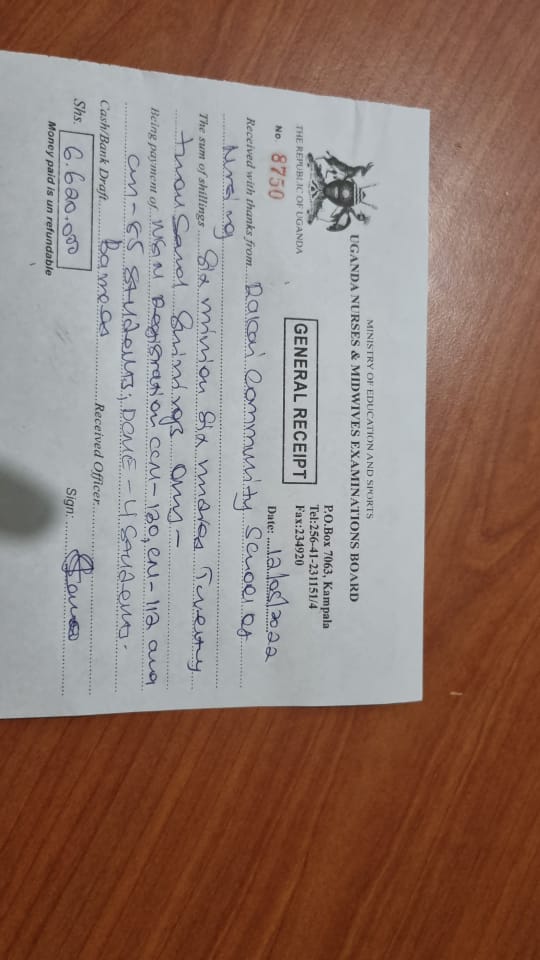 MINISTRY OF EDUCATION AND SPORTS
UGANDA NURSES & MIDWIVES EXAMINATIONS BOARD
P.O.Box 7063, Kampala
Tel:256-41-231151/4
Fax:234920
THE REPUBLIC OF UGANDA
GENERAL RECEIPT
No 8750
Date: 12/05/2022
Received with thanks from Rakai Community School of
Nursing
The sum of shillings Six million Six hundred Twenty
thousand Shillings Only -
Being payment of NSN Registration CCM-120, CN-112 and
CM-65 Students, DCNE-4 Students.
Cash/Bank Draft Received Officer
Shs. 6.620.000 Sign:
Money paid is un refundable